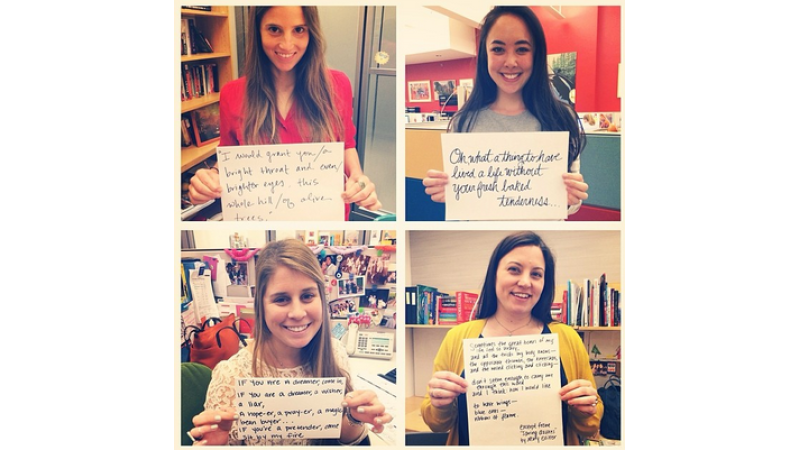 "I would grant you/a
bright throat and even/
brighter eyes. this
whole hill/of alive
trees."
Oh what a thing to have
lived a life without
your fresh baked
tenderness...
IF You are a dreamer, come in,
IF You are a dreamer, a wisher,
a liar,
A hope-er, a pray-er, a magic
bean buyer...
IF you're a pretender, come
sit by my fire
Sometimes the great bones of my
life feel so heavy,
and all the tricks my body knows—
the opposable thumbs, the kneecaps,
and the mind clicking and clicking—
don't seem enough to carry me
through this world
and I think: how I would like
to have wings—
blue ones—
ribbons of flame.
excerpt from
by Mary Oliver